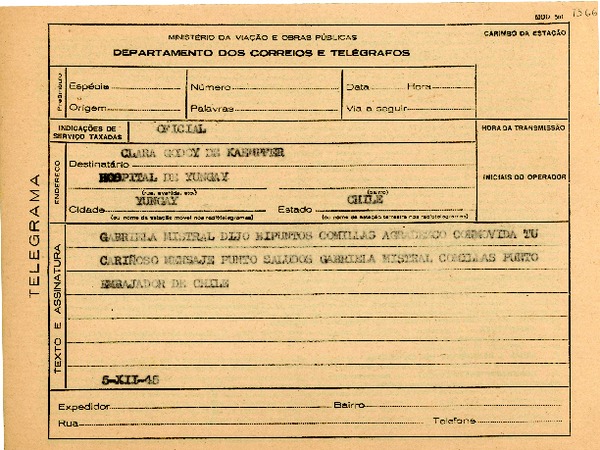 MOD 561 1366
MINISTÉRIO DA VIAÇÃO E OBRAS PÚBLICAS
DEPARTAMENTO DOS CORREIOS E TELÉGRAFOS
CARIMBO DA ESTAÇÃO
Preâmbulo
Espécie Número Data Hora
Origem Palavras Via a seguir
INDICAÇÕES DE SERVIÇO TAXADAS
OFICIAL
HORA DA TRANSMISSÃO
ENDEREÇO
CLARA GODOY DE KAEMPFER
Destinatário
HOSPITAL DE YUNGAY
INICIAIS DO OPERADOR
(rua, avenida, etc) (bairro)
YUNGAY CHILE
Cidade Estado
(ou nome da estação móvel nos radiotelegramas) (ou nome da estação terrestre nos radiotelegramas)
TELEGRAMA
TEXTO E ASSINATURA
GABRIELA MISTRAL DIJO BIPUNTOS COMILLAS AGRADEZCO CONMOVIDA TU
CARIÑOSO MENSAJE PUNTO SALUDOS GABRIELA MISTRAL COMILLAS PUNTO
EMBAJADOR DE CHILE
5-XII-45
Expedidor Bairro
Rua Telefone